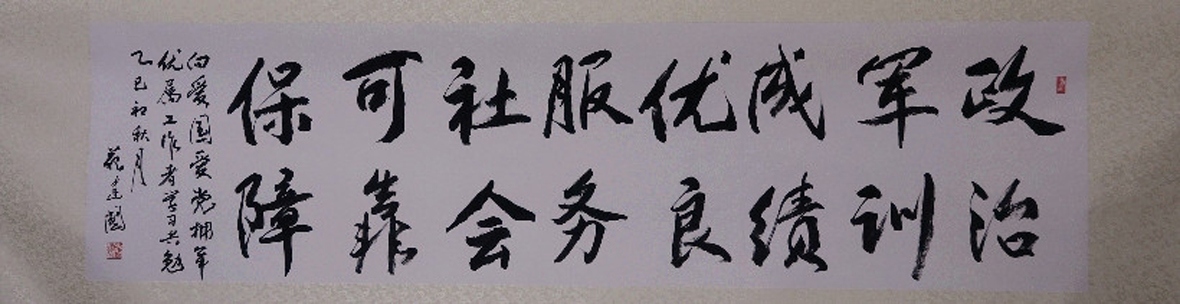 政治
军训
成绩
优良
服务
社会
可靠
保障
向爱国爱党拥军
优属工作者学习共勉
乙巳初秋月
范建国